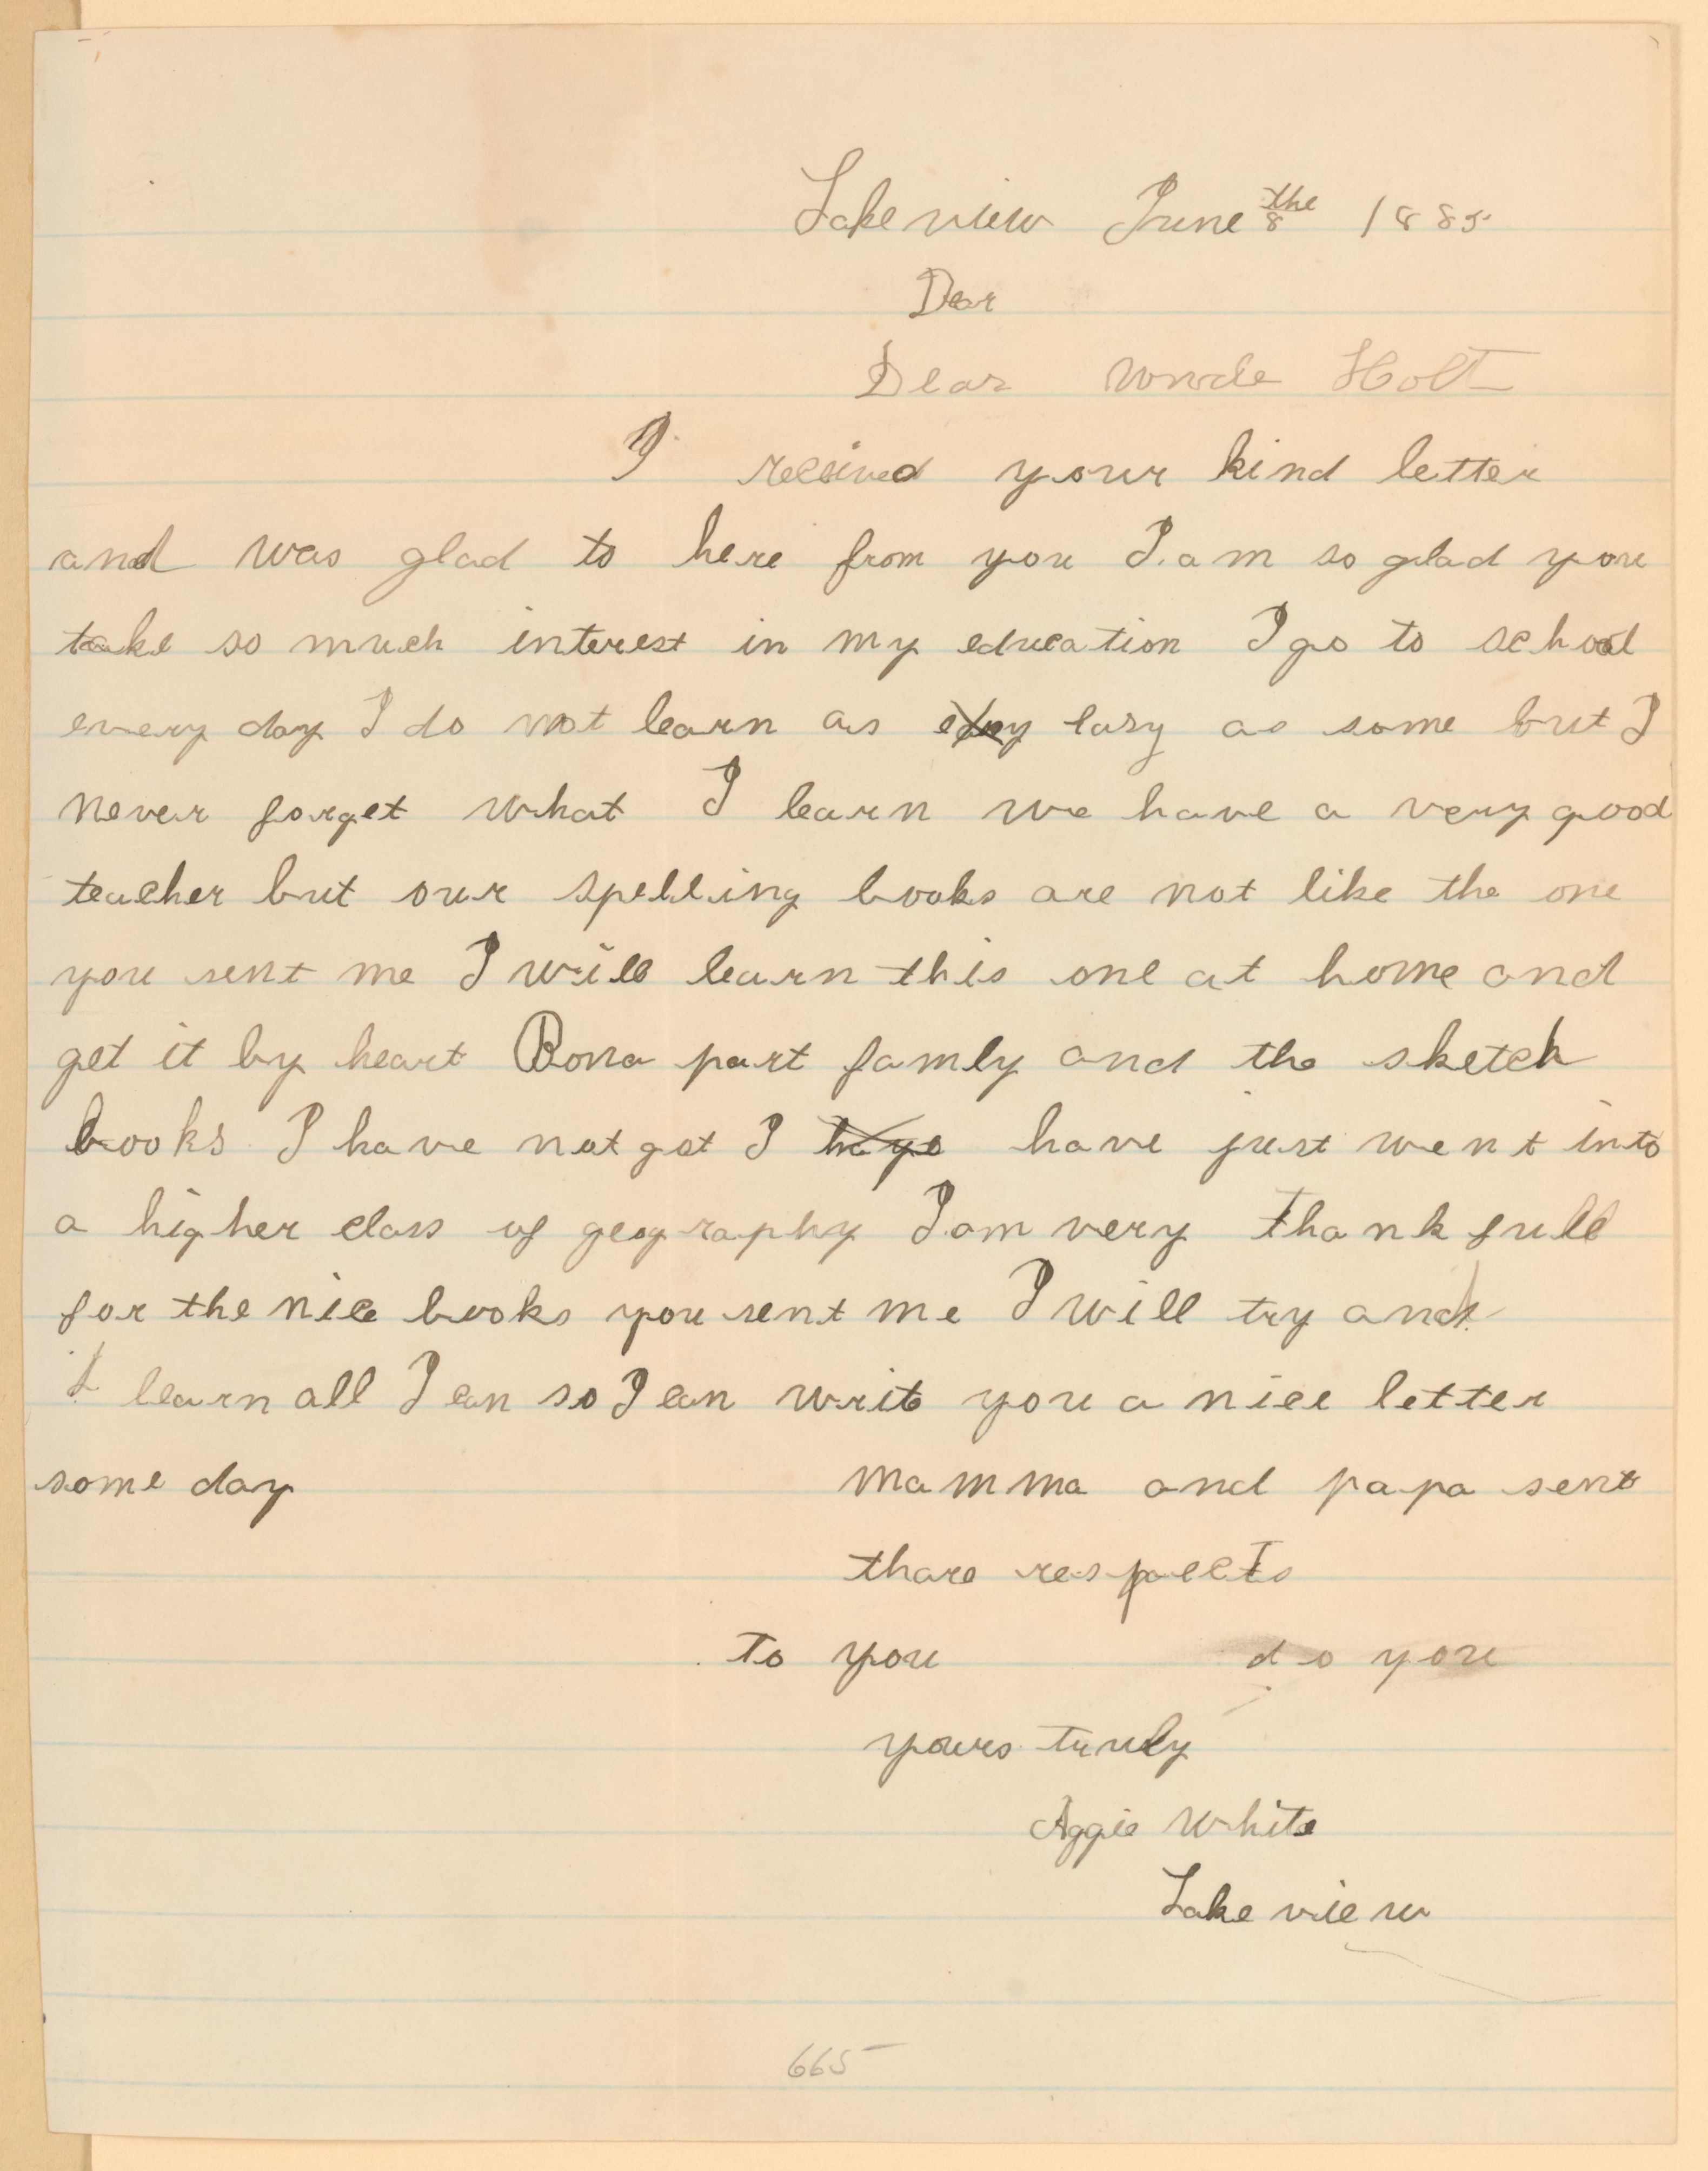 Lake view June 8 the 1885
Dear
Dear uncle Holt
I received your kind letter
and was glad to here from you I am so glad you
take so much interest in my education I go to school
every day I do not learn as easy as some but I
never forget what I learn we have a very good
teacher but our spelling books are not like the one
you sent me I will learn this one at home and
get it by heart Bona part famly and the sketch
books I have not got I have just went into
a higher class of geography I am very thank full
for the nice books you sent me I will try and
I learn all I can so I can write you a nice letter
some day mamma and papa sent
thare respects
to you do you
yours truly
Aggie White
Lake view
665